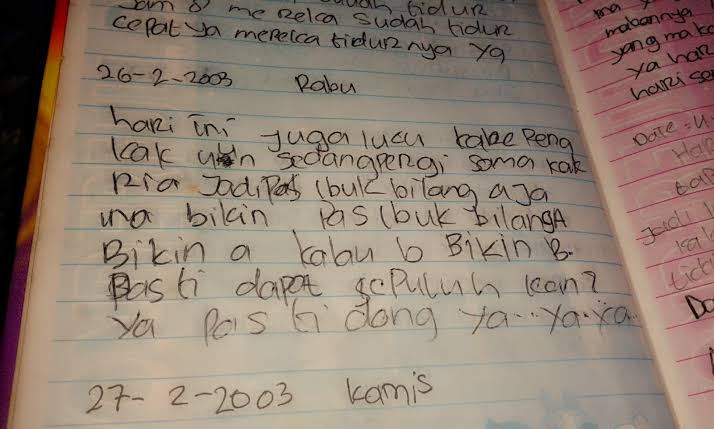 Jam 8 mereka sudah tidur
cepat ya mereka tidurnya ya
26-2-2003 Rabu
hari ini juga lucu kare Peng
kak sedang pergi sama kak
Ria Jadi Pas (buk bilang aja
ina bikin Pas (buk bilang A
Bikin a kabu b Bikin B.
Pasti dapat sepuluh kan?
ya Pasti dong ya...ya.ya..
27-2-2003 Kamis
ma
makannya
yang mak
ya har
hari se
Date: 4
Ha
tap
Jadi
ka
tid
Do